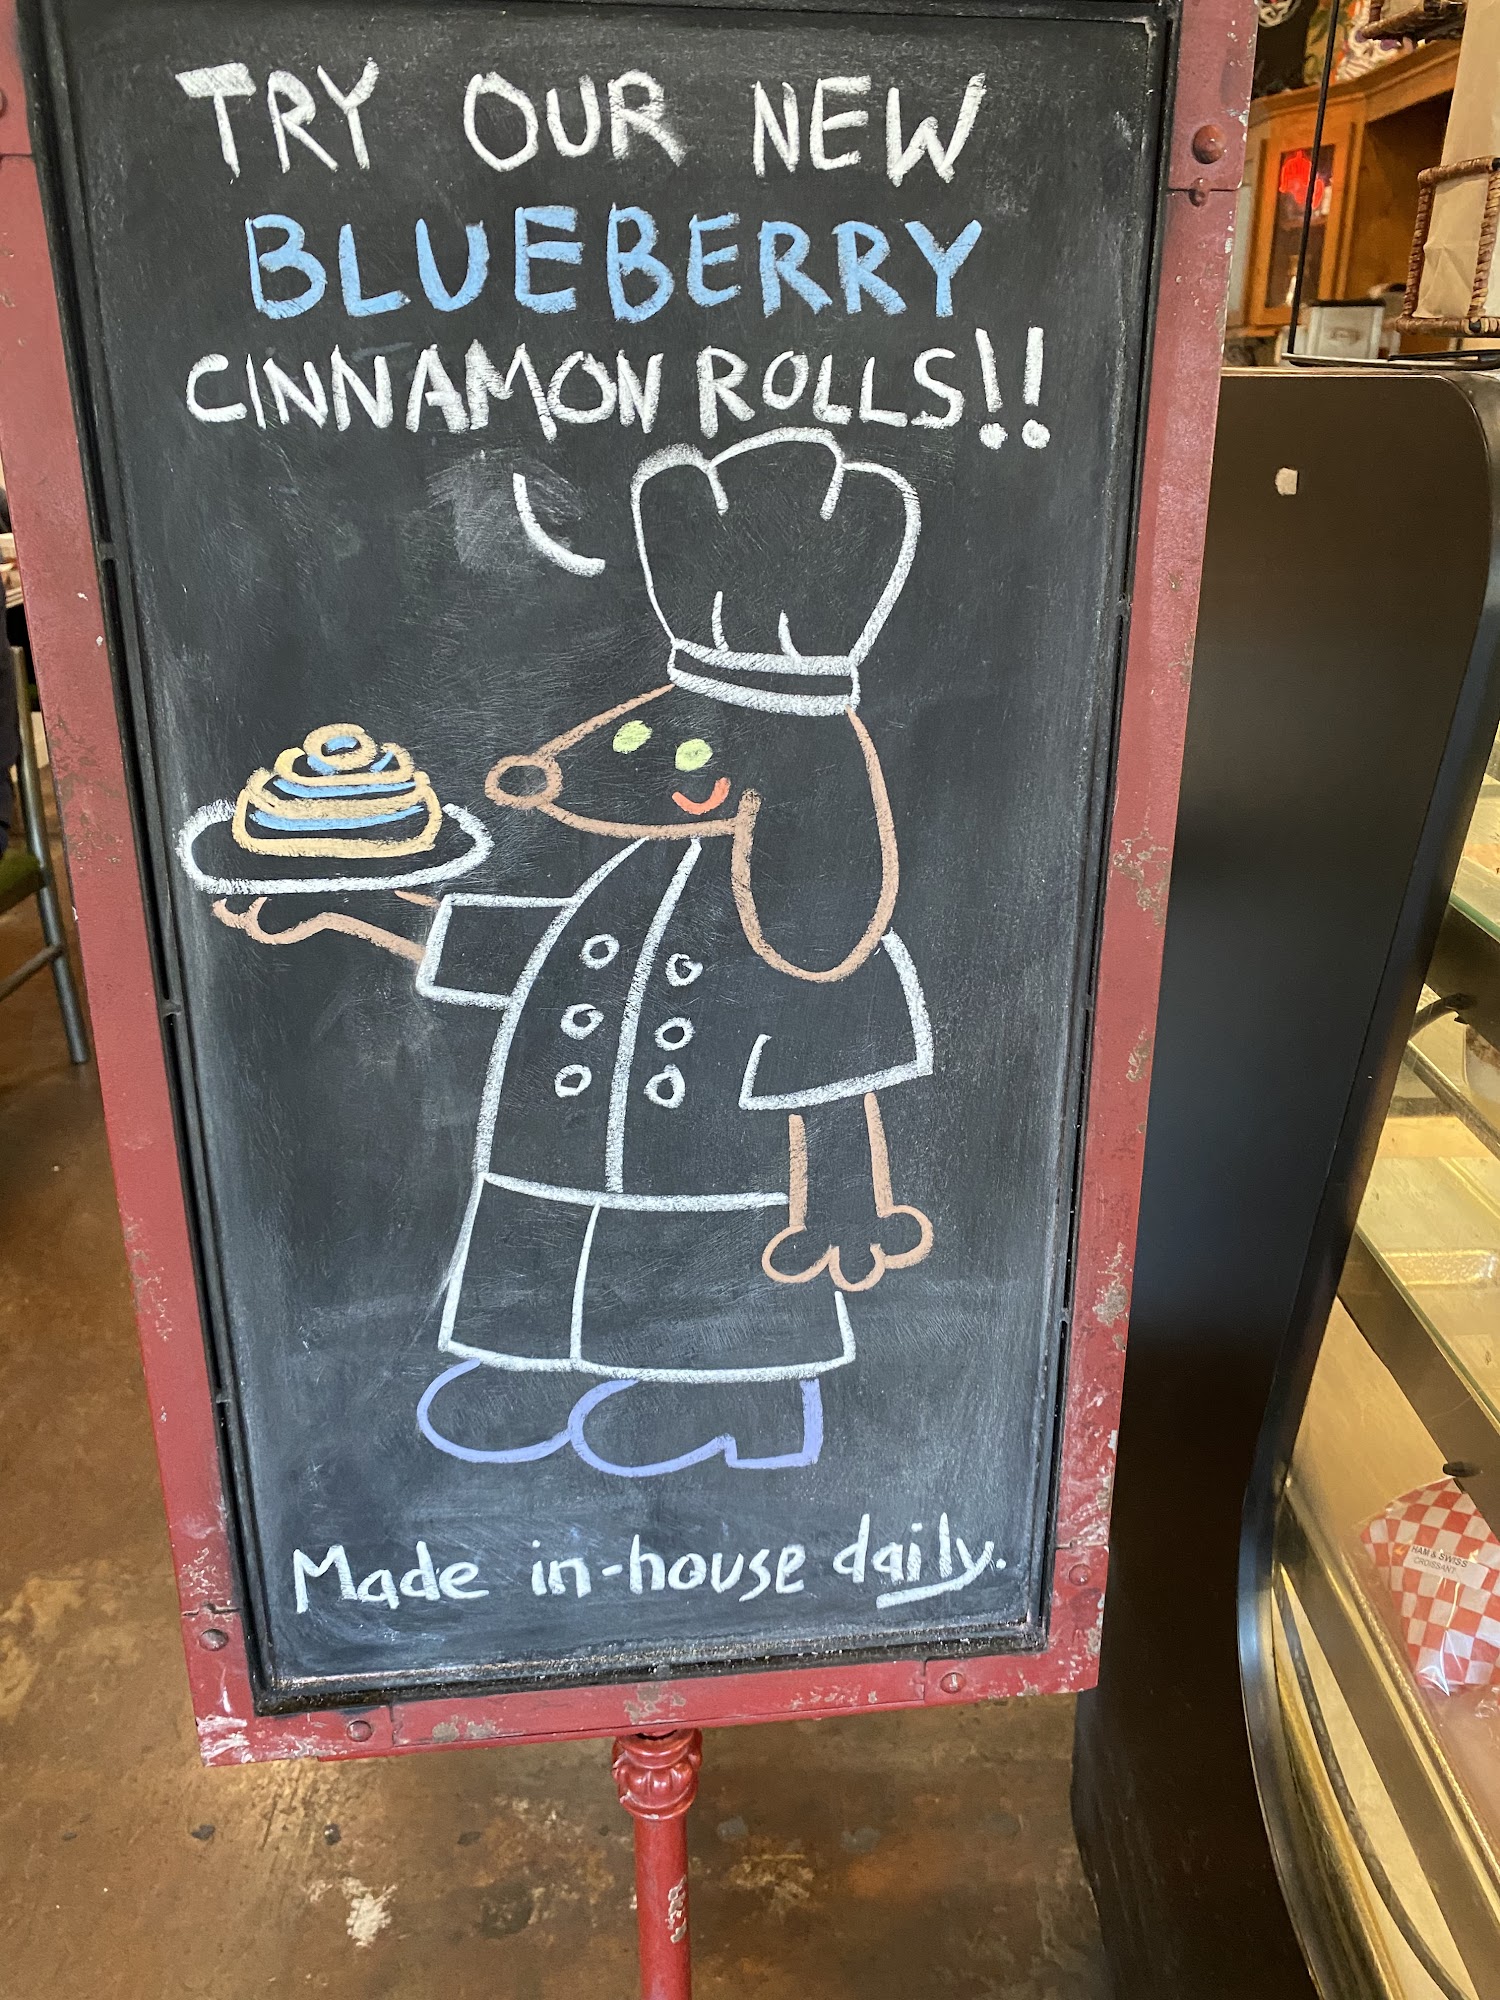 TRY OUR NEW
BLUEBERRY
CINNAMON ROLLS!!
Made in-house daily.
HAM & SWISS
CROISSANT